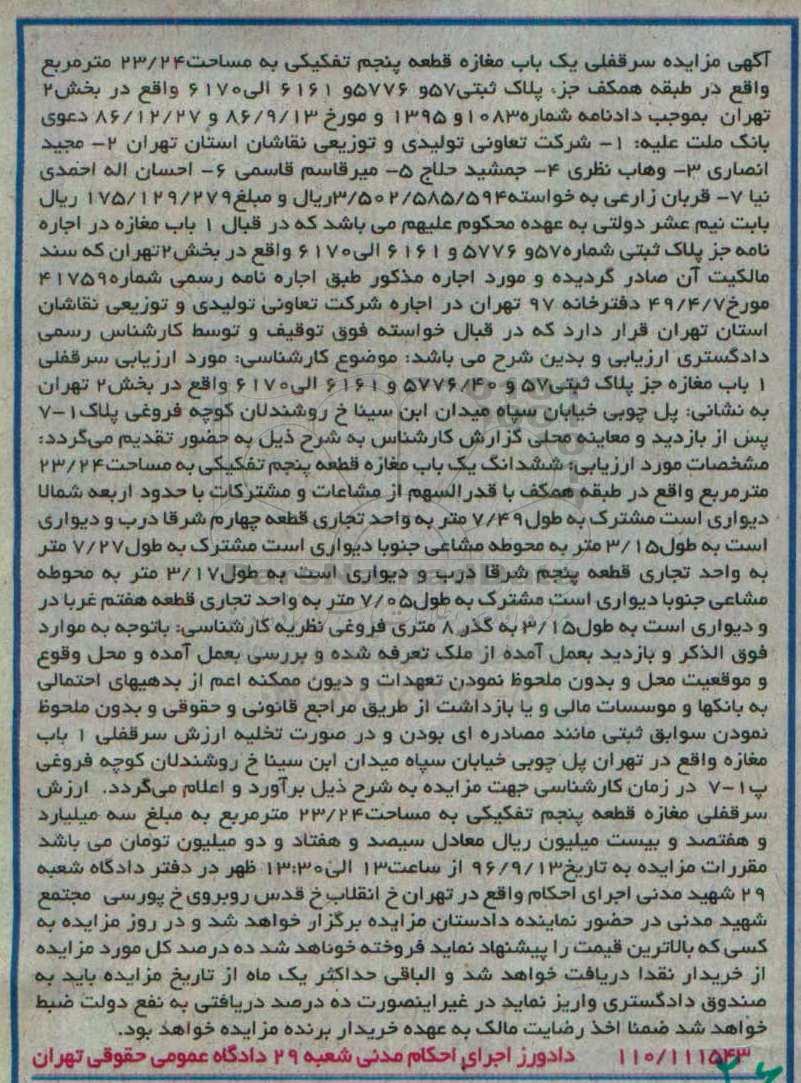 آگهی مزایده سرقفلی یک باب مغازه قطعه پنجم تفکیکی به مساحت۲۳/۲۴ مترمربع
واقع در طبقه همکف جزء پلاک ثبتی۵۷و ۵۷۷۶و ۶۱۶۱ الی۶۱۷۰ واقع در بخش۲
تهران بموجب دادنامه شماره۱۰۸۳و ۱۳۹۵ و مورخ ۸۶/۹/۱۳ و ۸۶/۱۲/۲۷ دعوی
بانک ملت علیه: ۱- شرکت تعاونی تولیدی و توزیعی نقاشان استان تهران ۲- مجید
انصاری ۳- وهاب نظری ۴- جمشید حلاج ۵- میرقاسم قاسمی ۶- احسان اله احمدی
نیا ۷- قربان زارعی به خواسته۳/۵۰۲/۵۸۵/۵۹۴ریال و مبلغ۱۷۵/۱۲۹/۲۷۹ ریال
بابت نیم عشر دولتی به عهده محکوم علیهم می باشد که در قبال ۱ باب مغازه در اجاره
نامه جز پلاک ثبتی شماره۵۷و ۵۷۷۶ و ۶۱۶۱ الی۶۱۷۰ واقع در بخش۲تهران که سند
مالکیت آن صادر گردیده و مورد اجاره مذکور طبق اجاره نامه رسمی شماره۴۱۷۵۹
مورخ۴۹/۴/۷ دفترخانه ۹۷ تهران در اجاره شرکت تعاونی تولیدی و توزیعی نقاشان
استان تهران قرار دارد که در قبال خواسته فوق توقیف و توسط کارشناس رسمی
دادگستری ارزیابی و بدین شرح می باشد: موضوع کارشناسی: مورد ارزیابی سرقفلی
۱ باب مغازه جز پلاک ثبتی۵۷ و ۵۷۷۶/۴۰ و ۶۱۶۱ الی۶۱۷۰ واقع در بخش۲ تهران
به نشانی: پل چوبی خیابان سپاه میدان ابن سینا خ روشندلان کوچه فروغی پلاک۱-۷
پس از بازدید و معاینه محلی گزارش کارشناس به شرح ذیل به حضور تقدیم می‌گردد:
مشخصات مورد ارزیابی: ششدانگ یک باب مغازه قطعه پنجم تفکیکی به مساحت۲۳/۲۴
مترمربع واقع در طبقه همکف با قدرالسهم از مشاعات و مشترکات با حدود اربعه شمالا
دیواری است مشترک به طول۷/۴۹ متر به واحد تجاری قطعه چهارم شرقا درب و دیواری
است به طول۳/۱۵ متر به محوطه مشاعی جنوبا دیواری است مشترک به طول۷/۲۷ متر
به واحد تجاری قطعه پنجم شرقا درب و دیواری است به طول۳/۱۷ متر به محوطه
مشاعی جنوبا دیواری است مشترک به طول۷/۰۵ متر به واحد تجاری قطعه هفتم غربا در
و دیواری است به طول۳/۱۵ به گذر ۸ متری فروغی نظریه کارشناسی: باتوجه به موارد
فوق الذکر و بازدید بعمل آمده از ملک تعرفه شده و بررسی بعمل آمده و محل وقوع
و موقعیت محل و بدون ملحوظ نمودن تعهدات و دیون ممکنه اعم از بدهیهای احتمالی
به بانکها و موسسات مالی و یا بازداشت از طریق مراجع قانونی و حقوقی و بدون ملحوظ
نمودن سوابق ثبتی مانند مصادره ای بودن و در صورت تخلیه ارزش سرقفلی ۱ باب
مغازه واقع در تهران پل چوبی خیابان سپاه میدان ابن سینا خ روشندلان کوچه فروغی
پ۱-۷ در زمان کارشناسی جهت مزایده به شرح ذیل برآورد و اعلام می‌گردد. ارزش
سرقفلی مغازه قطعه پنجم تفکیکی به مساحت۲۳/۲۴ مترمربع به مبلغ سه میلیارد
و هفتصد و بیست میلیون ریال معادل سیصد و هفتاد و دو میلیون تومان می باشد
مقررات مزایده به تاریخ۹۶/۹/۱۳ از ساعت۱۳ الی۱۳:۳۰ ظهر در دفتر دادگاه شعبه
۲۹ شهید مدنی اجرای احکام واقع در تهران خ انقلاب خ قدس روبروی خ پورسی مجتمع
شهید مدنی در حضور نماینده دادستان مزایده برگزار خواهد شد و در روز مزایده به
کسی که بالاترین قیمت را پیشنهاد نماید فروخته خوناهد شد ده درصد کل مورد مزایده
از خریدار نقدا دریافت خواهد شد و الباقی حداکثر یک ماه از تاریخ مزایده باید به
صندوق دادگستری واریز نماید در غیر اینصورت ده درصد دریافتی به نفع دولت ضبط
خواهد شد ضمنا اخذ رضایت مالک به عهده خریدار برنده مزایده خواهد بود.
۱۱۰/۱۱۱۵۴۳ دادورز اجرای احکام مدنی شعبه ۲۹ دادگاه عمومی حقوقی تهران